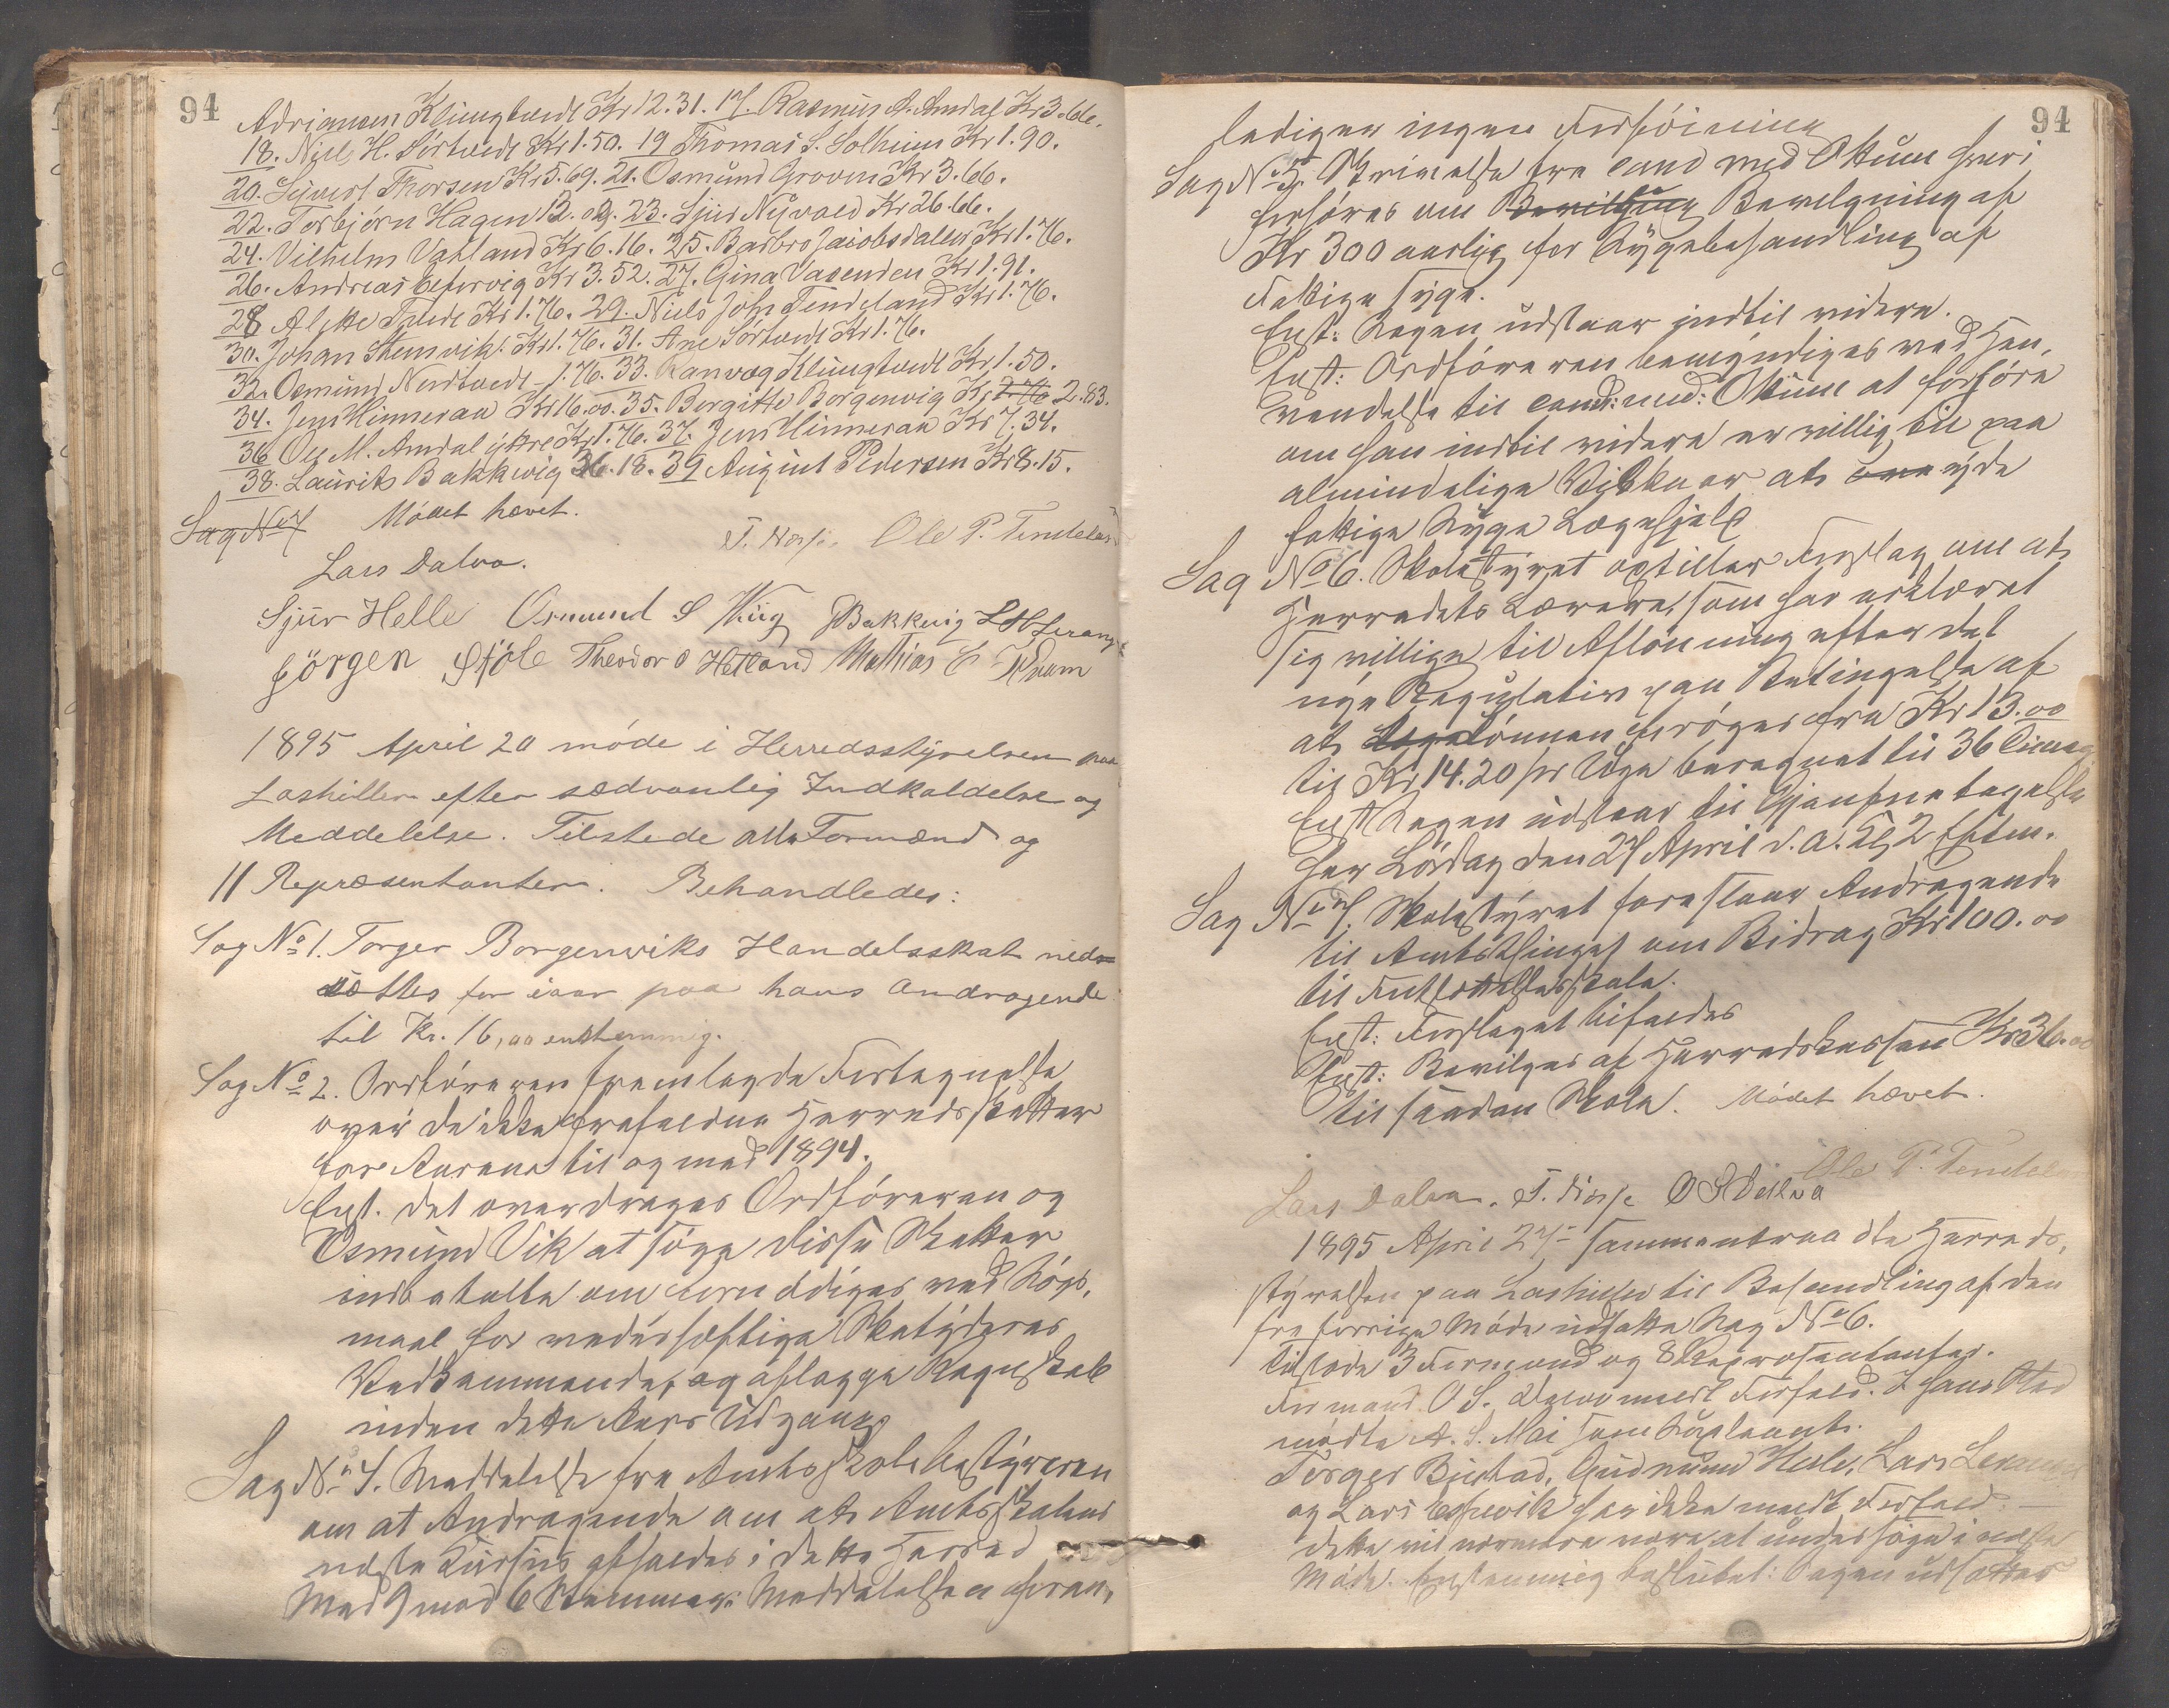 94
Adriansen Klungtvedt Kr 12.31. 17. Rasmus A. Amdal Kr 3.66.
18. Niels H. Sørtvedt Kr 1.50. 19 Thomas S. Solheim Kr 1.90.
20. Sivert Thorsen Kr 5.69. 21. Osmund Groven Kr 3.66.
22. Torbjørn Hagen 12.09. 23. Sjur Nyvold Kr 26.66.
24. Vilhelm Vatland Kr 6.16. 25. Barbro Jacobsdatter Kr 1.76.
26. Andreas Espevig Kr 3.52. 27. Gina Vasenden Kr 1.91.
28 Alette Tvedt Kr 1.76. 29. Niels Johs Tendeland Kr 1.76.
30. Johan Stenvik Kr 1.76. 31. Ane Sørtvedt Kr 1.76.
32. Osmund Nordtvedt - 1.76. 33. Ranvæg Klungtvedt Kr 1.50.
34. Jens Hinneraa Kr 16.00. 35. Bergitte Borgenvig Kr 2.83.
36 Ole M. Amdal ytre Kr 1.76. 37. Jens Hinneraa Kr 7.34.
38. Laurits Bakkevig 36.18. 39 August Pedersen Kr 8.15.
Sag No 7 Mødet hævet.
T. Næsse Ole P. Tendeland
Lars Dalva.
Sjur Helle Osmund S Wiig Bakkevig
Jørgen Støle Theodor O Hetland Mathias E Kvam
1895 April 20 møde i Herredsstyrelsen paa
Lashiller efter sædvanlig Indkaldelse og
Meddelelse. Tilstede alle Formænd og
11 Repræsentanter. Behandledes:
Sag No 1. Torger Borgenwiks Handelsskat ned-
sættes for iaar paa hans Andragende
til Kr. 16,00 enstemmig.
Sag No 2. Ordføreren fremlagde Fortegnelse
over de ikke frafaldne Herredsskatter
for Aarene til og med 1894.
Enst. det overdrages Ordføreren og
Osmund Vik at søge disse Skatter
indbetalte om fornødiges ved Søgs,
maal for vederhæftige Skatydere
Vedkommende, og aflægge Regnskab
inden dette Aars Udgang
Sag No 4. Meddelelse fra Amtsskolebestyreren
om at Andragende om at Amtsskolens
næste Kursus afholdes i dette Herred
Med 9 mod 6 Stemmer: Meddelelsen foran,
94
lediger ingen Forføining
Sag No 5. Skrivelse fra cand med Okum hvori
forføres om Bevilgning Bevilgning af
Kr 300 aarlig for Sygebehandling af
Fattige syge.
Enst: Sagen udstaar indtil videre.
Enst: Ordføreren bemyndiges ved Hen,
vendelse til cand: med: Okum at forføre
om han indtil videre er villig til paa
almindelige Vilkaar at yde
fattige Syge Lægehjelp
Sag No 6. Skolestyret opstiller Forslag om at
Herredets Lærere, som har erklæret
sig villige til Aflønning efter det
nye Regulativ paa Betingelse af
at Lønnen forøges fra Kr 13.00
til Kr 14.20 pr Uge beregnet til 36 Timer
Enst Sagen udstaar til Gjenforetagelse
her Lørdag den 27 April d. A. Kl 2 Efterm.
Sag No 7. Skolestyret foreslaar Andragende
til Amtsthinget om Bidrag Kr 100.00
til Fortsættelsesskole.
Enst: Forslaget bifaldes
Enst: Bevilges af Herredskassen Kr 36.00
til saadan Skole. Mødet hævet.
Ole P. Tendeland
Lars Dalva. T. Næsse
1895 April 27 sammentraadte Herreds,
styrelsen paa Lashiller til Behandling af den
fra forrige Møde udsatte Sag No 6.
Tilstede 3 Formænd og 8 Repræsentanter.
Formand O S. anmeldt Forfald. I hans Sted
mødte A. S. Mæi som Suppleant.
Torger Birstad, Gudmund Helle, Lars
og Lars Espevik har ikke meldt Forfald. —
dette vil nærmere være at undersøge i næste
Møde. Enstemmig besluttet: Sagen udsættes